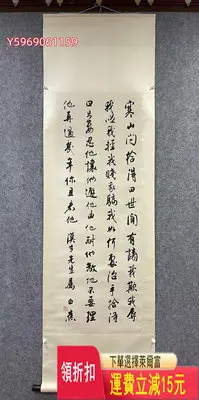 Y5969061159
寒山问拾得曰世間有謗我欺我辱
我笑我輕我賤我騙我如何處治乎拾得
曰只要忍他讓他避他由他耐他敬他不要理
他再過幾年你且看他 先生屬 白蕉
領折扣
下單選擇萊爾富
運費立減15元